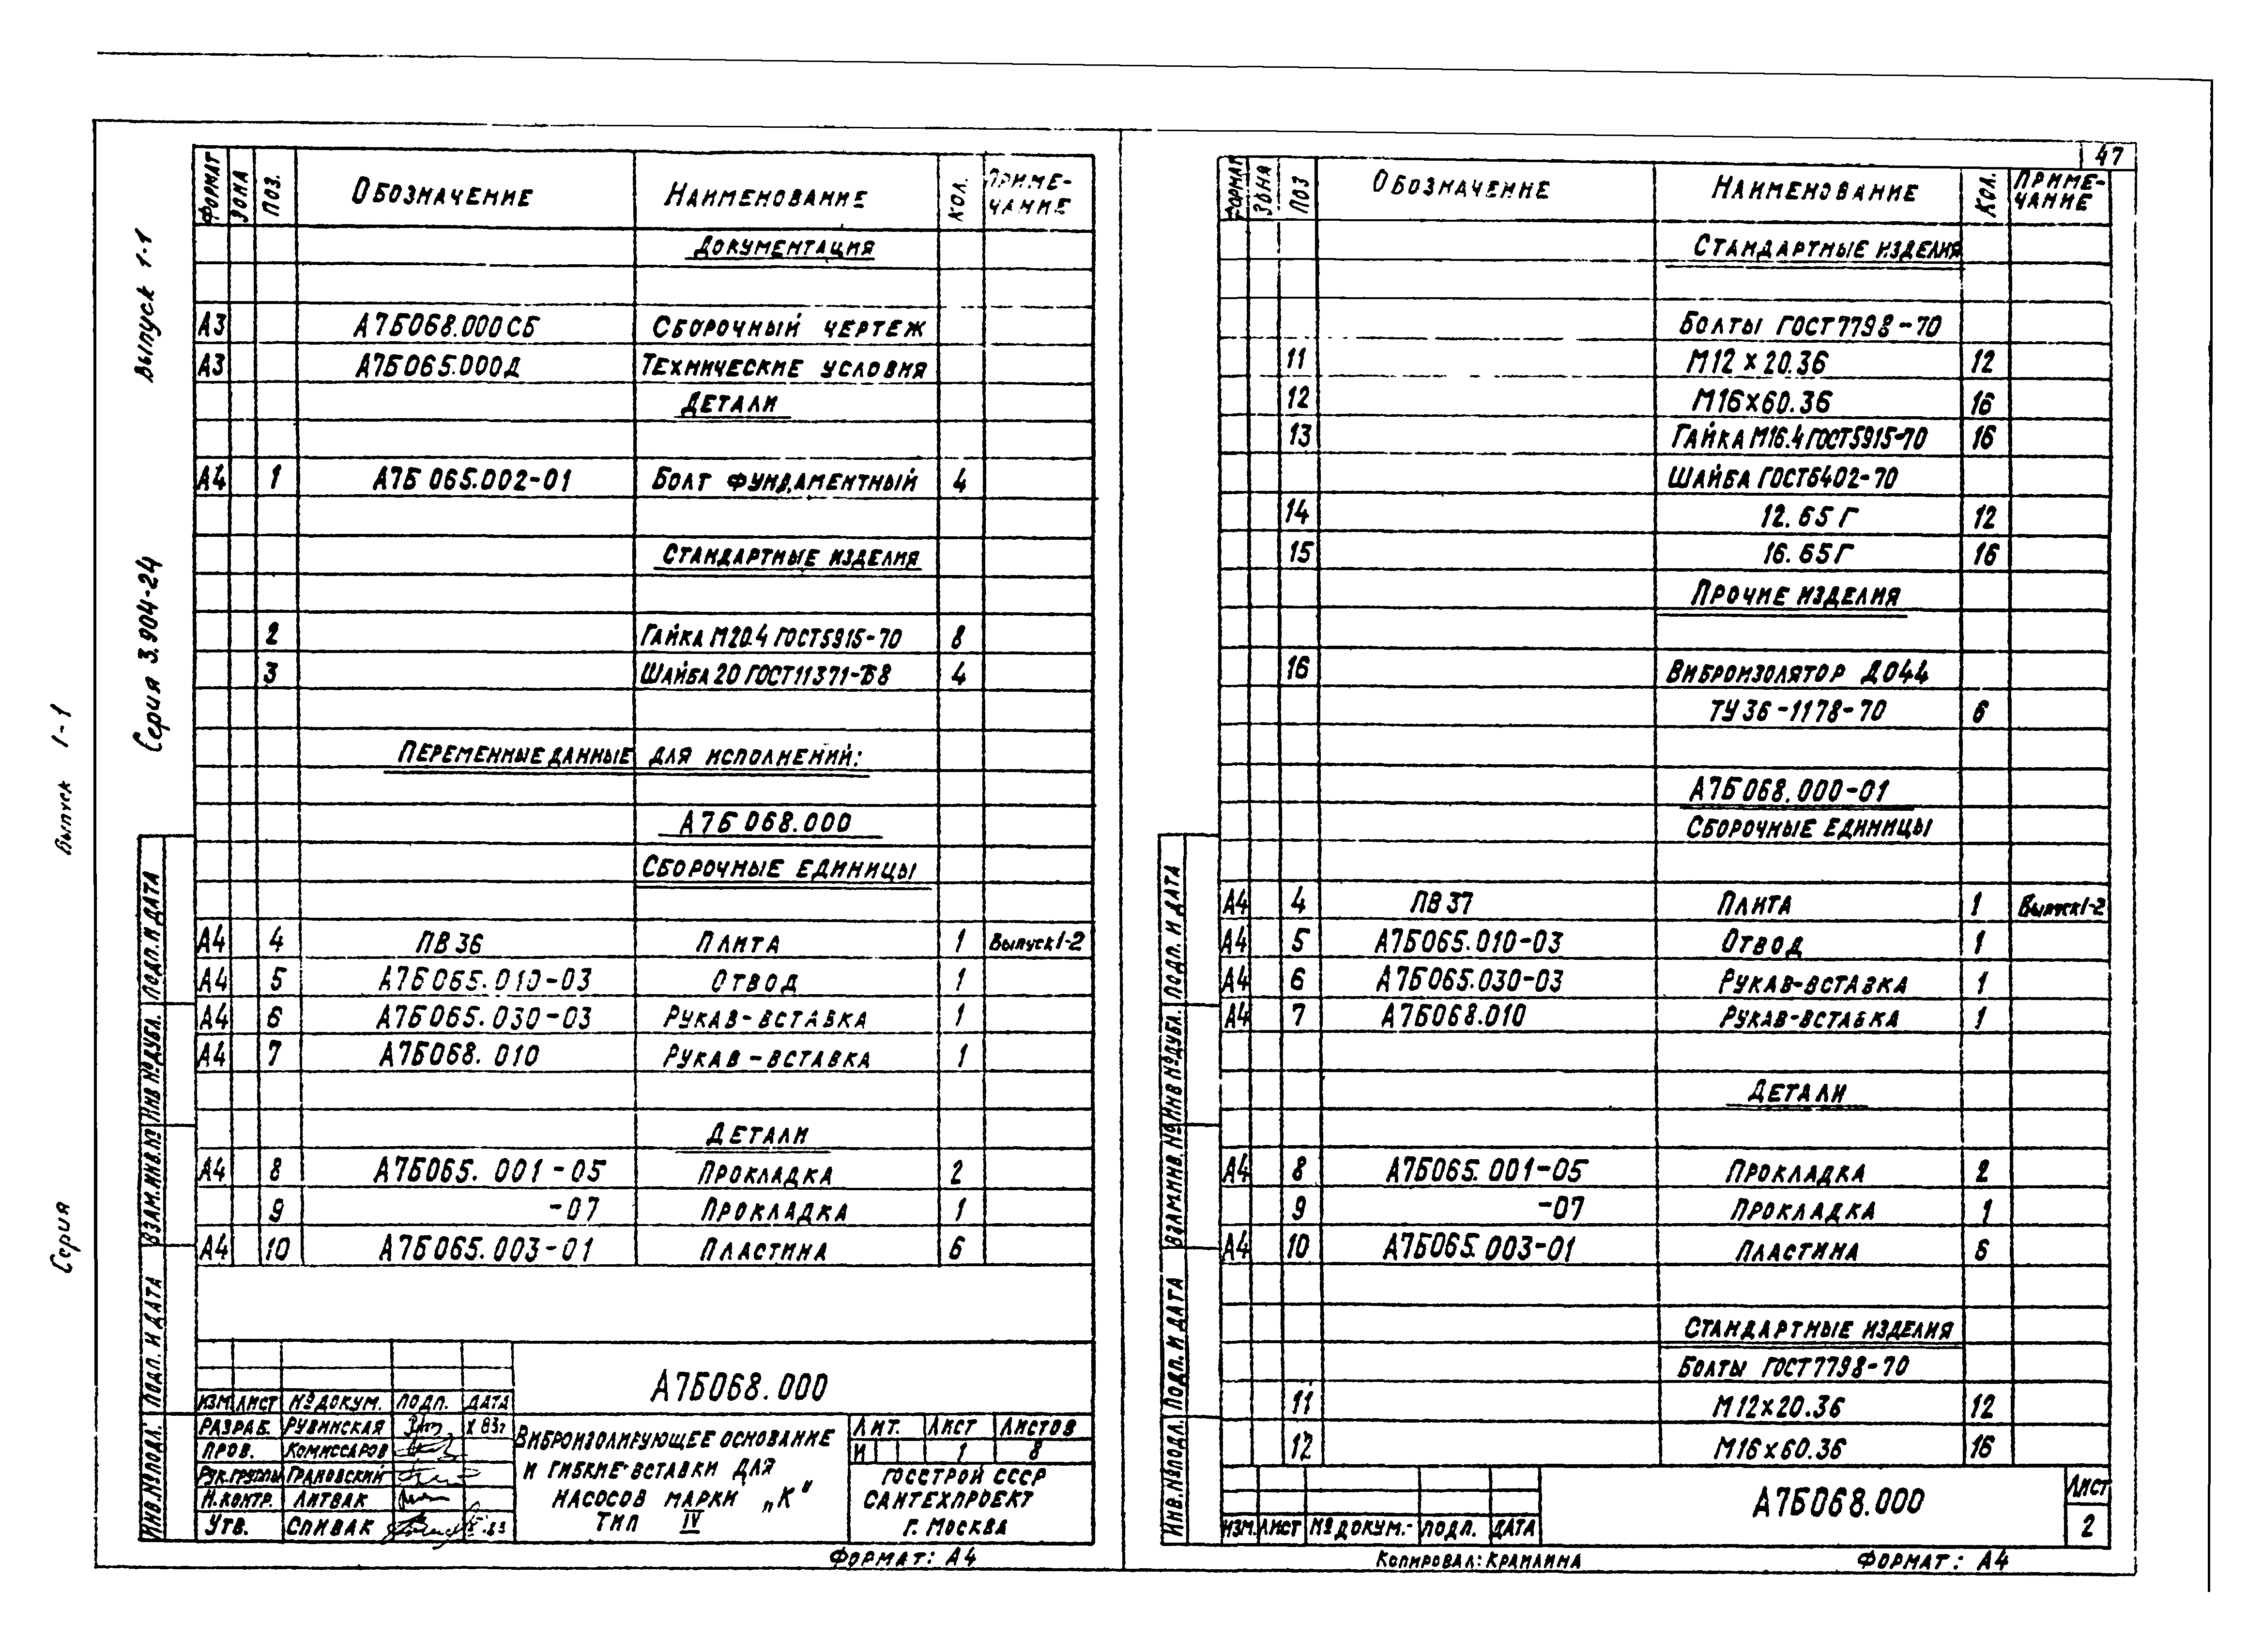 Выпуск 1-1
Серия
Выпуск 1-1
Серия 3.904-24
ФОРМАТ ЗОНА ПОЗ. ОБОЗНАЧЕНИЕ НАИМЕНОВАНИЕ КОЛ. ПРИМЕ-
ЧАНИЕ
ДОКУМЕНТАЦИЯ
А3 А7Б068.000СБ СБОРОЧНЫЙ ЧЕРТЕЖ
А3 А7Б065.000Д ТЕХНИЧЕСКИЕ УСЛОВИЯ
ДЕТАЛИ
А4 1 А7Б 065.002-01 БОЛТ ФУНДАМЕНТНЫЙ 4
СТАНДАРТНЫЕ ИЗДЕЛИЯ
2 ГАЙКА М20.4 ГОСТ5915-70 8
3 ШАЙБА 20 ГОСТ11371-68 4
ПЕРЕМЕННЫЕ ДАННЫЕ ДЛЯ ИСПОЛНЕНИЙ:
А7Б 068.000
СБОРОЧНЫЕ ЕДИНИЦЫ
А4 4 ПВ 36 ПЛИТА 1 Выпуск 1-2
А4 5 А7Б065.010-03 ОТВОД 1
А4 6 А7Б065.030-03 РУКАВ-ВСТАВКА 1
А4 7 А7Б068.010 РУКАВ-ВСТАВКА 1
ДЕТАЛИ
А4 8 А7Б065.001-05 ПРОКЛАДКА 2
9 -07 ПРОКЛАДКА 1
А4 10 А7Б065.003-01 ПЛАСТИНА 6
ИНВ.№ПОДЛ. ПОДП. И ДАТА ВЗАМ.ИНВ.№ ИНВ №ДУБЛ. ПОДП.И ДАТА
А7Б068.000
ИЗМ ЛИСТ №ДОКУМ. ПОДП. ДАТА
РАЗРАБ. РУВИНСКАЯ X 83г
ПРОВ. КОМИССАРОВ
РУК.ГРУППЫ ГРАНОВСКИЙ
Н.КОНТР. ЛИТВАК
УТВ. СПИВАК
ВИБРОИЗОЛИРУЮЩЕЕ ОСНОВАНИЕ
И ГИБКИЕ ВСТАВКИ ДЛЯ
НАСОСОВ МАРКИ „К"
ТИП IV
ЛИТ. ЛИСТ ЛИСТОВ
И 1 8
ГОССТРОЙ СССР
САНТЕХПРОЕКТ
Г. МОСКВА
ФОРМАТ: А4
47
ФОРМАТ ЗОНА ПОЗ ОБОЗНАЧЕНИЕ НАИМЕНОВАНИЕ КОЛ. ПРИМЕ-
ЧАНИЕ
СТАНДАРТНЫЕ ИЗДЕЛИЯ
БОЛТЫ ГОСТ7798-70
11 М12 х 20.36 12
12 М16х60.36 16
13 ГАЙКА М16.4 ГОСТ5915-70 16
ШАЙБА ГОСТ6402-70
14 12.65Г 12
15 16.65Г 16
ПРОЧИЕ ИЗДЕЛИЯ
16 ВИБРОИЗОЛЯТОР ДО44
ТУ 36-1178-70 6
А7Б068.000-01
СБОРОЧНЫЕ ЕДИНИЦЫ
А4 4 ПВ37 ПЛИТА 1 Выпуск1-2
А4 5 А7Б065.010-03 ОТВОД 1
А4 6 А7Б065.030-03 РУКАВ-ВСТАВКА 1
А4 7 А7Б068.010 РУКАВ-ВСТАВКА 1
ДЕТАЛИ
А4 8 А7Б065.001-05 ПРОКЛАДКА 2
9 -07 ПРОКЛАДКА 1
А4 10 А7Б065.003-01 ПЛАСТИНА 6
СТАНДАРТНЫЕ ИЗДЕЛИЯ
БОЛТЫ ГОСТ7798-70
11 М12х20.36 12
12 М16х60.36 16
ИНВ.№ПОДЛ. ПОДП. И ДАТА ВЗАМ.ИНВ.№ ИНВ №ДУБЛ. ПОДП. И ДАТА
ИЗМ. ЛИСТ № ДОКУМ. ПОДП. ДАТА
А7Б068.000
ЛИСТ
2
КОПИРОВАЛ: КРАИЛИНА
ФОРМАТ: А4